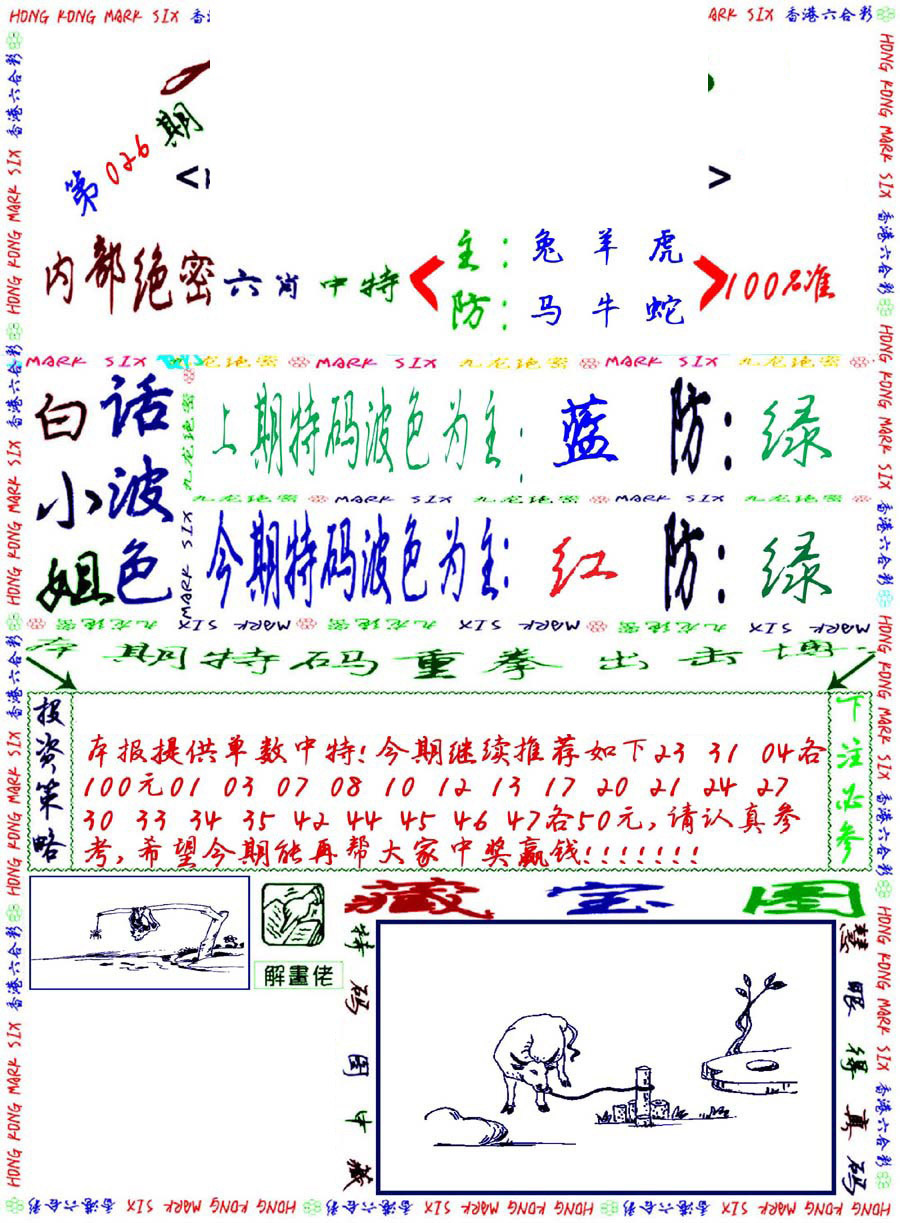 HONG KONG MARK SIX 香
ARK SIX 香港六合彩
第026期
< >
内部绝密六肖中特
主：兔羊虎
防：马牛蛇
100%准
MARK SIX 九龙绝密 MARK SIX 九龙绝密 MARK SIX 九龙绝密
白话
小波
姐色
上期特码波色为主：蓝 防：绿
九龙绝密 MARK SIX 九龙绝密 MARK SIX 九龙绝密
今期特码波色为主：红 防：绿
九龙绝密 MARK SIX 九龙绝密 MARK SIX 九龙绝密 MARK SIX
期特码重拳出击
投资策略
本报提供单数中特!今期继续推荐如下23 31 04各
100元01 03 07 08 10 12 13 17 20 21 24 27
30 33 34 35 42 44 45 46 47各50元,请认真参
考,希望今期能再帮大家中奖赢钱!!!!!!!
下注必参
解畫佬
藏宝图
特码图中藏
慧眼得真码
HONG KONG MARK SIX 香港六合彩